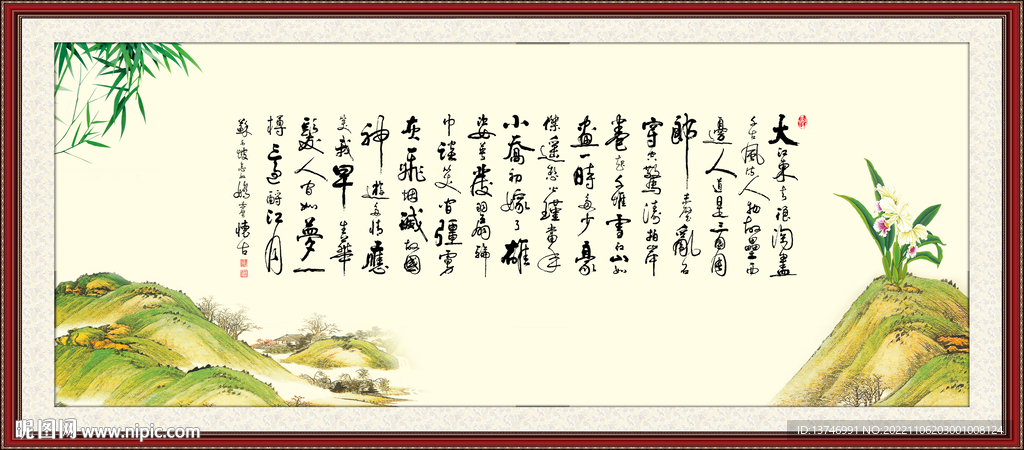 大江東去浪淘盡
千古風流人物故壘西
邊人道是三國周
郎赤壁亂石
穿空驚濤拍岸
卷起千堆雪江山如
畫一時多少豪
傑遥想公瑾當年
小喬初嫁了雄
姿英發羽扇綸
巾談笑間强虜
灰飛烟滅故國
神遊多情應
笑我早生華
髮人間如夢一
樽還酹江月
昵图网 www.nipic.com
ID:13746991 NO:20221106203001008124